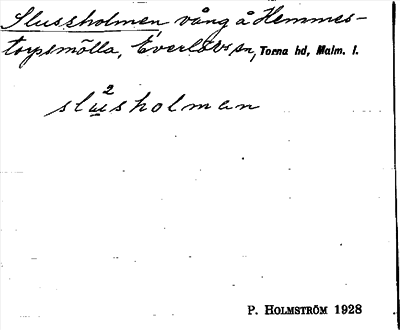 Slussholmen, vång å Hemmes-
torpsmölla, Everlövs sn, Torna hd, Malm. l.
2
slu̲sholman
P. HOLMSTRÖM 1928